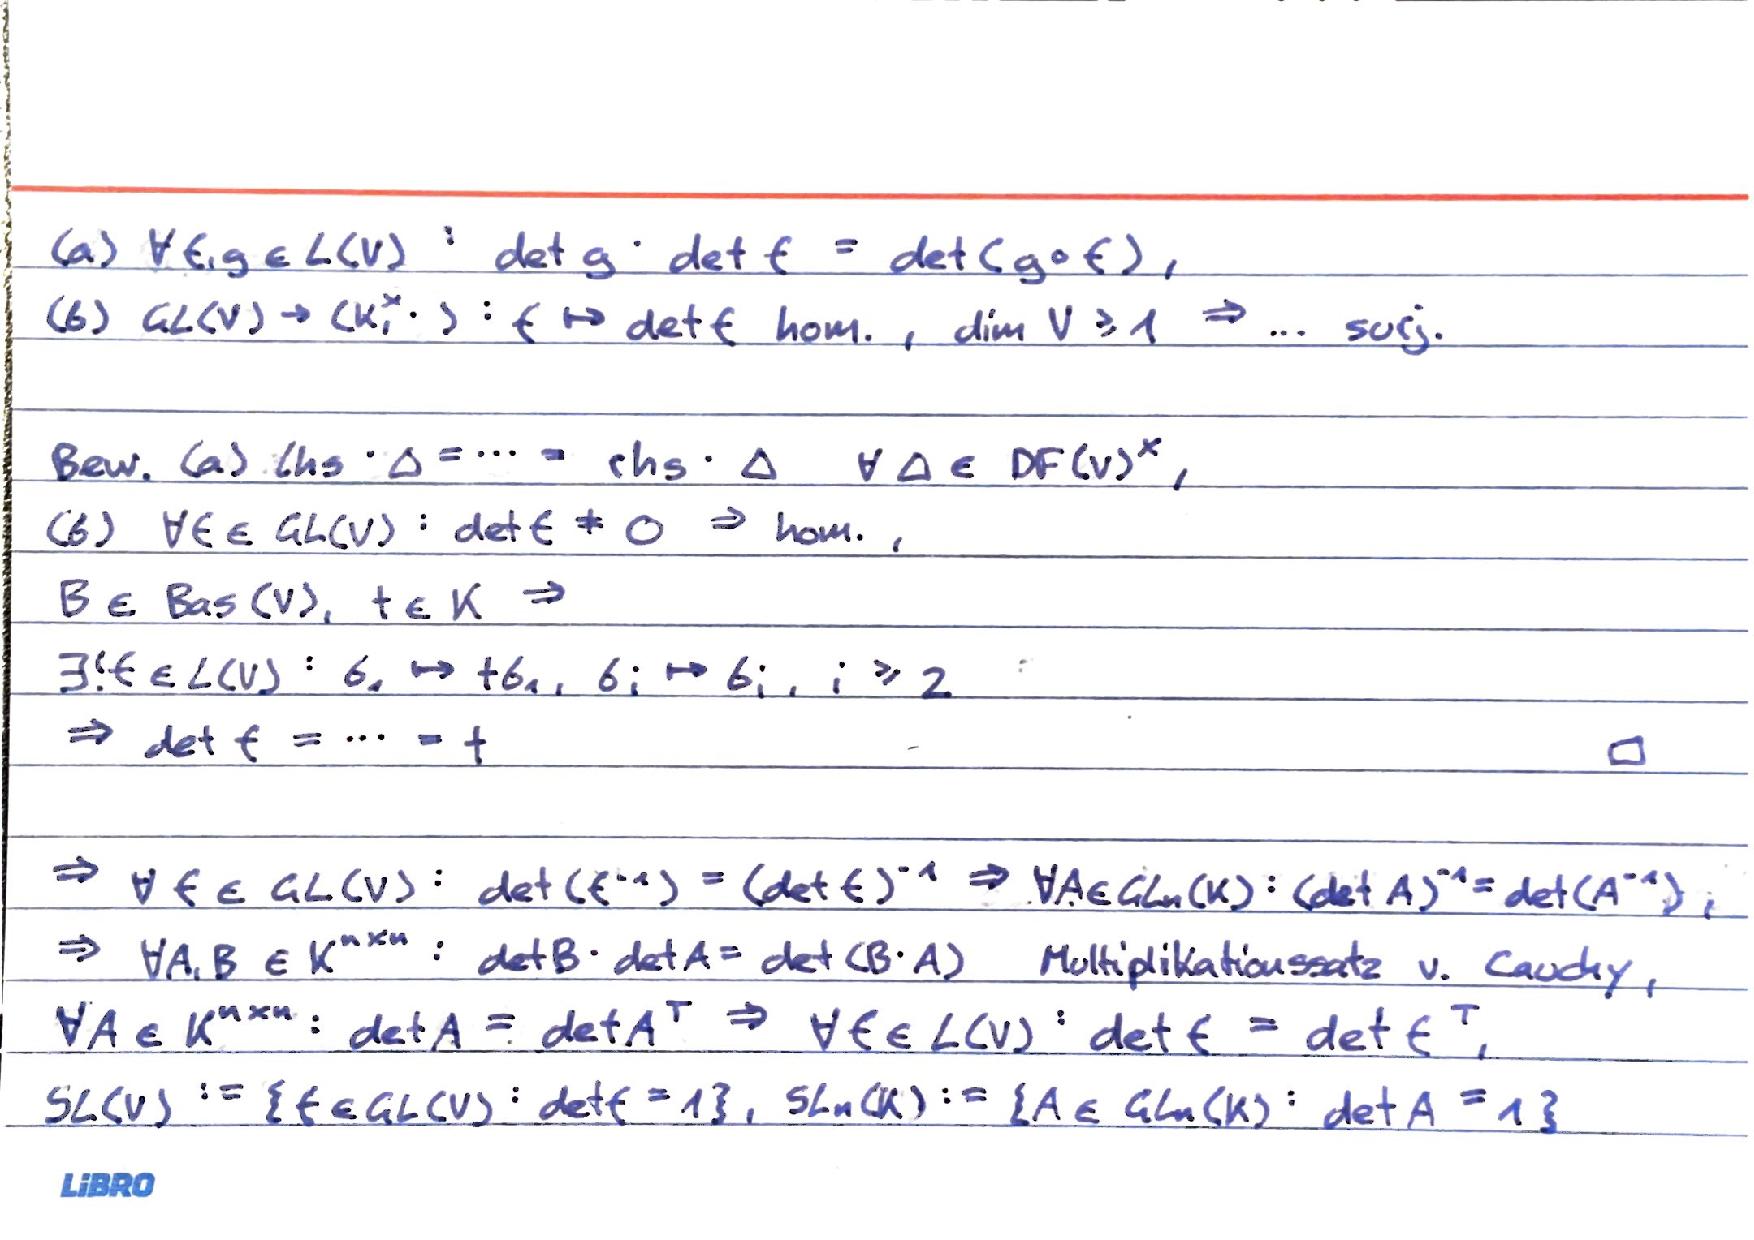 (a) ∀ f, g ∈ L(V) : det g · det f = det(g∘f),
(b) GL(V) → (K^×, ·) : f ↦ det f hom., dim V ≥ 1 ⇒ ... surj.
Bew. (a) lhs · Δ = ··· = rhs · Δ ∀ Δ ∈ DF(V)^×,
(b) ∀f ∈ GL(V) : det f ≠ 0 ⇒ hom.,
B ∈ Bas(V), t ∈ K ⇒
∃! f ∈ L(V) : b₁ ↦ tb₁, bᵢ ↦ bᵢ, i ≥ 2
⇒ det f = ··· = t □
⇒ ∀ f ∈ GL(V) : det(f⁻¹) = (det f)⁻¹ ⇒ ∀A ∈ GLₙ(K) : (det A)⁻¹ = det(A⁻¹),
⇒ ∀A, B ∈ K^{n×n} : det B · det A = det(B·A) Multiplikationssatz v. Cauchy,
∀A ∈ K^{n×n} : det A = det A^T ⇒ ∀f ∈ L(V) : det f = det f^T,
SL(V) := {f ∈ GL(V) : det f = 1}, SLₙ(K) := {A ∈ GLₙ(K) : det A = 1}
LiBRO